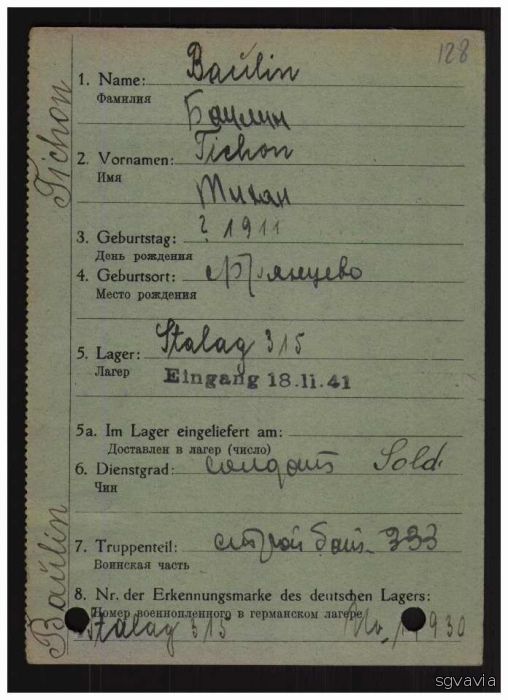 128
1. Name: Baulin
Фамилия
Баулин
2. Vornamen: Tichon
Имя
Тихан
3. Geburtstag: ? 1911
День рождения
4. Geburtsort:
Место рождения
5. Lager: Stalag 315
Лагер
Eingang 18.11.41
5a. Im Lager eingeliefert am:
Доставлен в лагер (число)
6. Dienstgrad: солдат Sold.
Чин
7. Truppenteil: строй бат. 333
Воинская часть
8. Nr. der Erkennungsmarke des deutschen Lagers:
Номер военнопленного в германском лагере
Stalag 315 No.
Baulin Tichon
sgvavia